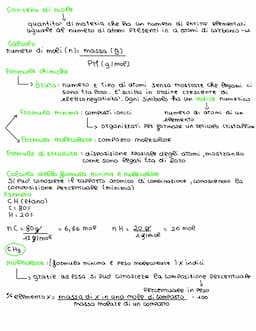 Concetto di mole
quantita' di materia che ha un numero di entita' elementari
uguale al numero di atomi presenti in 12 atomi di carbonio-12
Calcolo
numero di moli (n): massa (g)
PM (g/mol)
Formule chimiche
Bruta: numero e tipo di atomi senza mostrare che legami ci
sono tra loro. E' scritta in ordine crescente di
elettronegativita'. Ogni simbolo ha un indice numerico
Formula minima: composti ionici numero di atomi di un
elemento
organizzati per formare un reticolo cristallino
Formula molecolare: composto molecolare
Formula di struttura: disposizione spaziale degli atomi, mostrando
come sono legati tra di loro
Calcolo della formula minima e molecolare
Si puo' conoscere il rapporto atomico di combinazione, conoscendo la
composizione percentuale (minima)
Esempio
CH (etano)
C = 80%
H = 20%
n C = 80g = 6,66 mol n H = 20 g = 20 mol
12 g/mol 1 g/mol
CH3
molecolare: (formula minima e peso molecolare) x indici
grazie ad essa si puo' conoscere la composizione percentuale
percentuale in peso
% elemento x = massa di x in una mole di composto · 100
massa molare di un composto